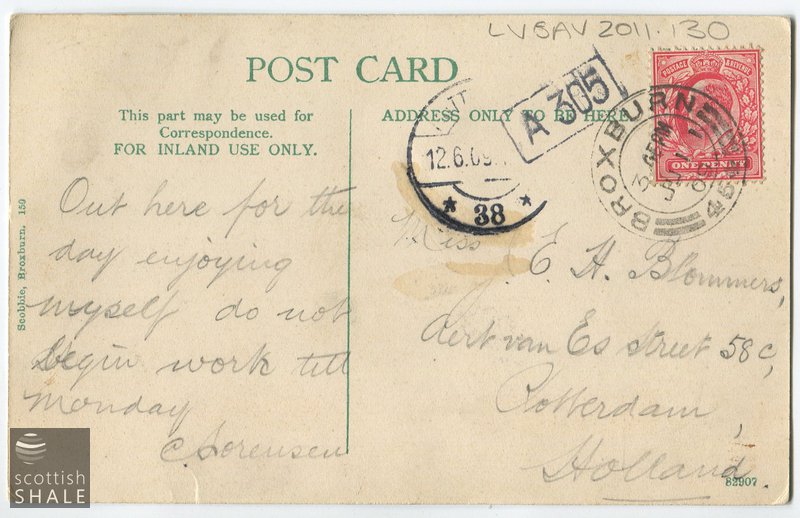 LVSAV 2011.130
POST CARD
This part may be used for
Correspondence.
FOR INLAND USE ONLY.
ADDRESS ONLY TO BE HERE.
A 305
12.6.09
* 38 *
POSTAGE & REVENUE
ONE PENNY
BROXBURN
Out here for the
day enjoying
myself do not
begin work till
Monday
C Sorensen
Miss
E. H. Blommers,
Aert van Es street 58c,
Rotterdam,
Holland.
Scobbie, Broxburn. 150
82907
scottish
SHALE